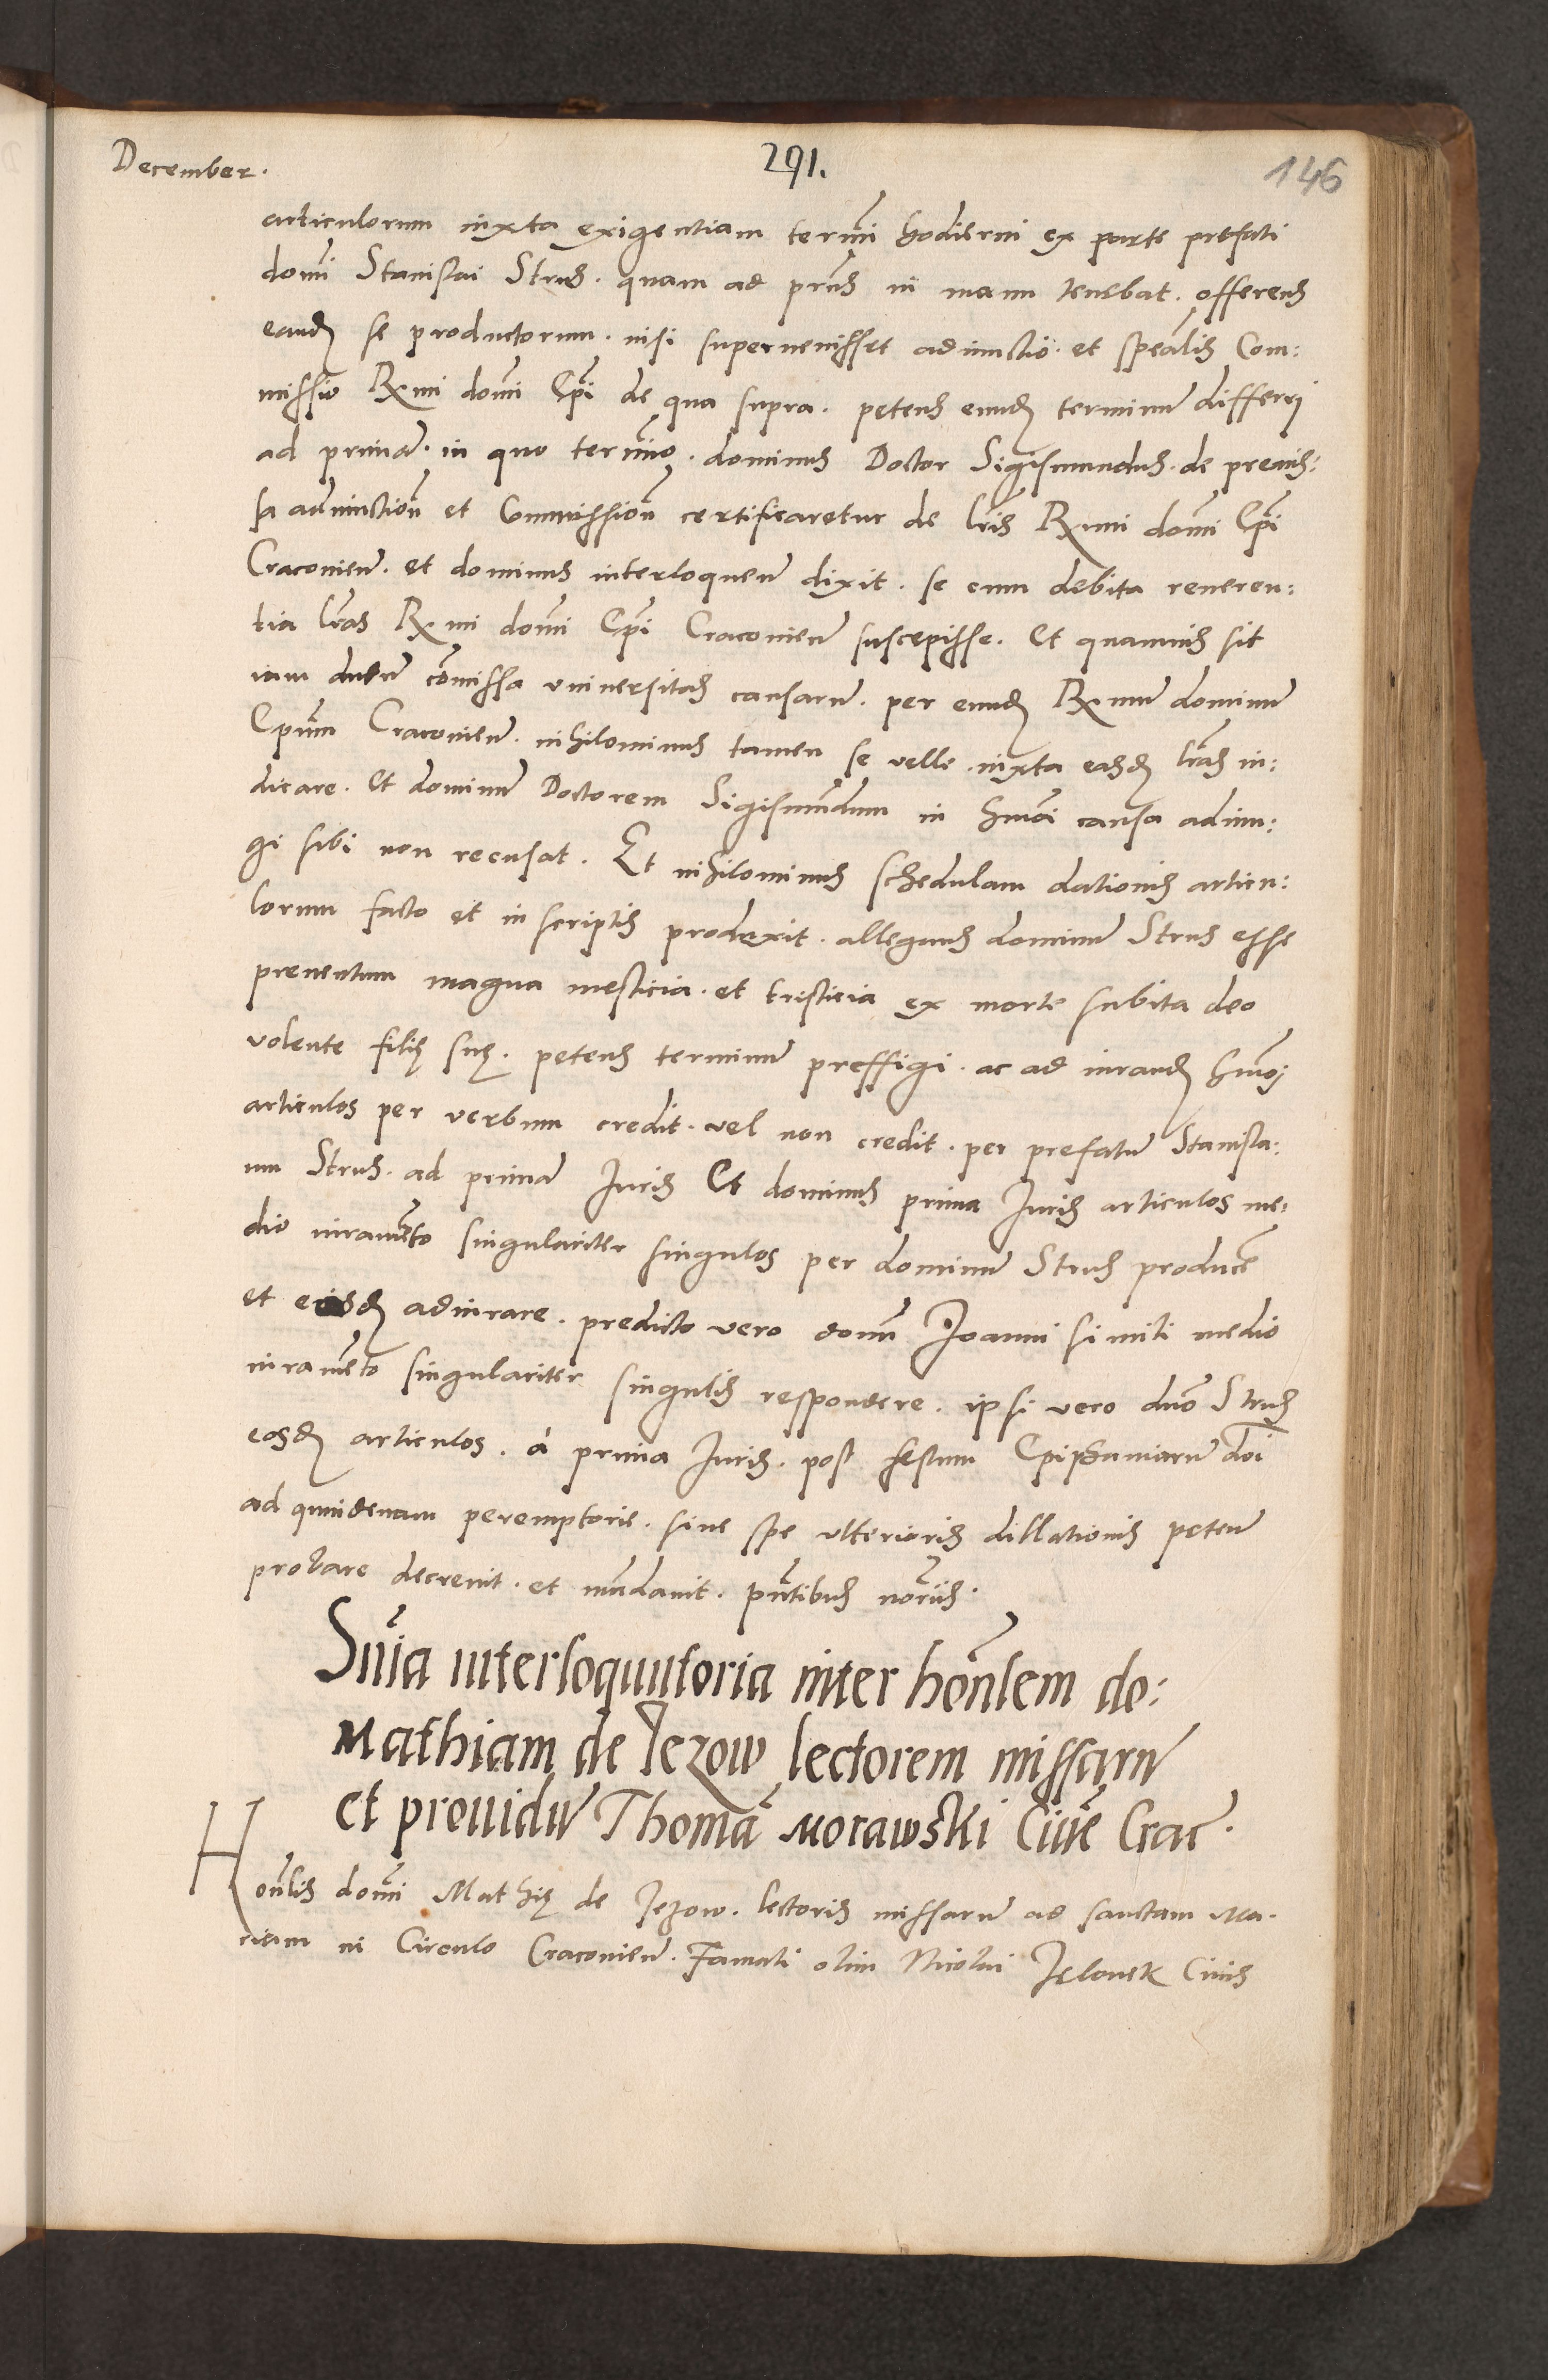 December. 291. 146
articulorum iuxta exigentiam termi͂ni hodierni ex parte prefati
domi͂ Stanislai Strus. quam ad prn͂s in manu tenebat. offerens
eand̨ se producturum. nisi superuenisset adiunctio͂. et spea͂lis Com:
missio Rx̃mi domi͂ Ep͂i de qua supra. petens eund̨ terminu͂ differri
ad prima͂. in quo termi͂no. dominus Doctor Sigismundus. de premis:
sa adiunction͂ et Commission͂ certificaretur de lr͂is Rx̃mi domi͂ Ep͂i
Cracouien͂. et dominus interloquen͂ dixit. se cum debita reueren:
tia lr͂as Rx̃mi domi͂ Ep͂i Cracouien͂ suscepisse. Et quamuis sit
iam dudu͂ co͂missa vniuersitas causaru͂. per eund̨ Rx̃mu͂ dominu͂
Ep͂um Cracouien͂. nihilominus tamen se velle iuxta easd̨ lr͂as iu:
dicare. Et dominu͂ Doctorem Sigismu͂dum in hmo͂i causa adiun:
gi sibi non recusat. Et nihilominus schedulam dationis articu:
lorum facto et in scriptis produxit. allegans dominu͂ Strus esse
preuentum magna mesticia. et tristicia ex morte subita deo
volente filię suę. petens terminu͂ preffigi. ac ad iurand̨ hmo͂j
articulos per verbum credit. vel non credit. per prefatu͂ Stanisla:
um Strus. ad prima͂ Iuris Et dominus prima Iuris articulos me:
dio iurame͂to singulariter singulos per dominu͂ Strus produce͂
et eisd̨ adiurare. predicto vero domi͂ Ioanni simili medio
iurame͂to singulariter singulis respondere. ipsi vero dn͂o Strus
eosd̨ articulos. á prima Iuris. post festum Epiphaniaru͂ do͂i
ad quindenam peremptorie. sine spe vlterioris dillationis peten͂
probare decreuit. et ma͂dauit. pn͂tibus nor͂iis.
Sn͂ia interloquutoria inter hon͂lem do:
Mathiam de Iezow lectorem missaru͂
et prouidu͂ Thoma͂ Morawski Ciue͂ Crac͂.
Hon͂lis domi͂ Mathię de Iezow. lectoris missaru͂ ad sanctam Ma.
riam in Circulo Cracouien͂. Famati olim Nicolai Ielonek Ciuis